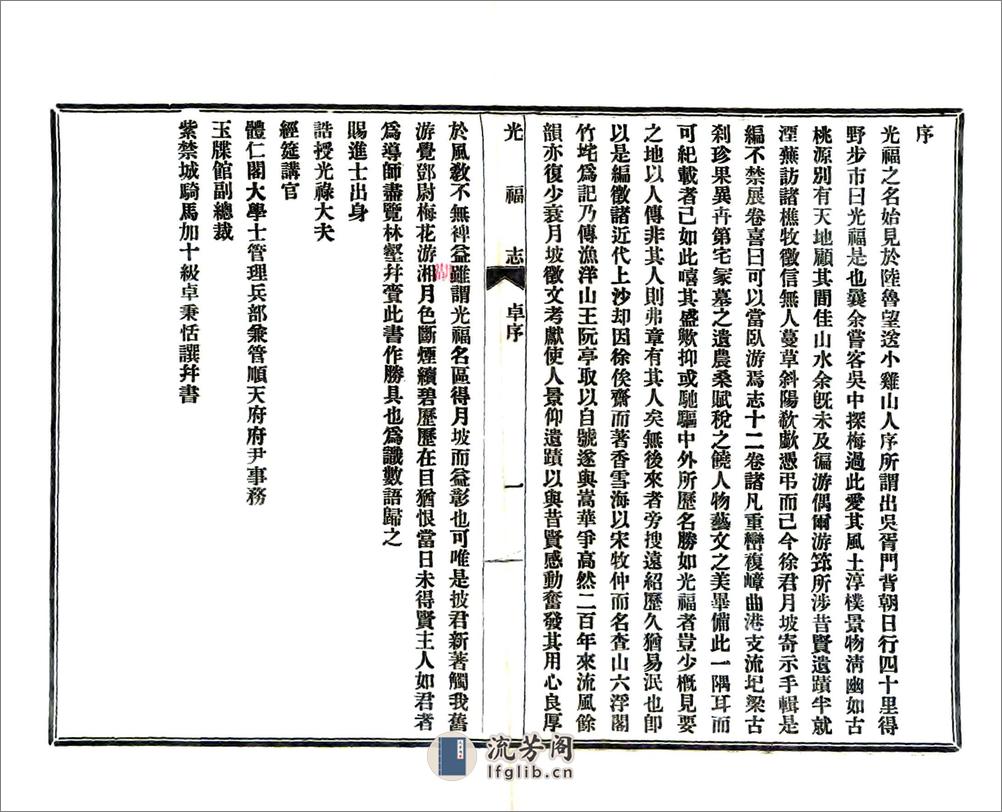 序
光福之名始見於陸魯望送小雞山人序所謂出吳胥門背朝日行四十里得
野步市曰光福是也曩余嘗客吳中探梅過此愛其風土淳樸景物清幽如古
桃源別有天地顧其間佳山水余旣未及徧游偶爾游筇所涉昔賢遺蹟半就
湮蕪訪諸樵牧徵信無人蔓草斜陽欷歔憑弔而已今徐君月坡寄示手輯是
編不禁展卷喜曰可以當臥游焉志十二卷諸凡重巒複嶂曲港支流圮梁古
刹珍果異卉第宅冢墓之遺農桑賦稅之饒人物藝文之美畢備此一隅耳而
可紀載者已如此嘻其盛歟抑或馳驅中外所歷名勝如光福者豈少槪見要
之地以人傳非其人則弗章有其人矣無後來者旁搜遠紹歷久猶易泯也卽
以是編徵諸近代上沙却因徐俟齋而著香雪海以宋牧仲而名查山六浮閣
竹垞爲記乃傳漁洋山王阮亭取以自號遂與嵩華爭高然二百年來流風餘
韻亦復少衰月坡徵文考獻使人景仰遺蹟以與昔賢感動奮發其用心良厚
光福志
卓序
一
於風敎不無裨益雖謂光福名區得月坡而益彰也可唯是披君新著觸我舊
游覺鄧尉梅花游湘月色斷煙續碧歷歷在目猶恨當日未得賢主人如君者
爲導師盡覽林壑幷賫此書作勝具也爲識數語歸之
賜進士出身
誥授光祿大夫
經筵講官
體仁閣大學士管理兵部兼管順天府府尹事務
玉牒館副總裁
紫禁城騎馬加十級卓秉恬譔幷書
流芳阁
lfglib.cn